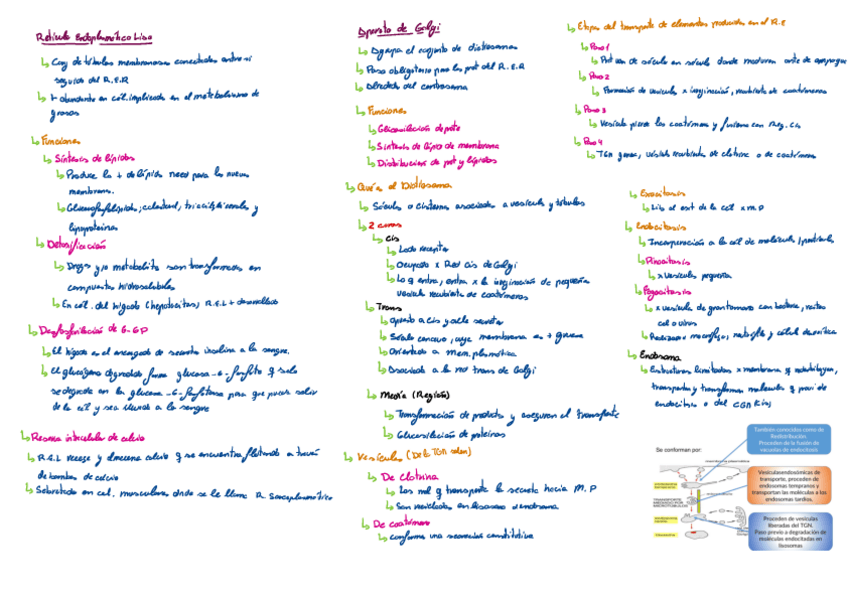 Retículo Endoplasmático Liso
↳ Conj de túbulos membranosos conectados entre sí
seguido del R.E.R
↳ + abundante en cél. implicada en el metabolismo de
grasas
↳ Funciones
↳ Síntesis de lípidos
↳ Produce la + de lípidos need para las nuevas
membranas.
↳ Glicerofosfolípidos, colesterol, triacilgliceroles y
lipoproteínas
↳ Detoxificación
↳ Drogas y/o metabolitos son transformados en
compuestos hidrosolubles
↳ En cél. del hígado (hepatocitos) R.E.L + desarrollado
↳ Desfosforilación de G-6P
↳ El hígado es el encargado de secretar insulina a la sangre.
↳ El glucógeno degradado forma glucosa-6-fosfato q solo
se degrada en la glucosa-6-fosfatasa para que pueda salir
de la cél y sea llevada a la sangre
↳ Reserva intracelular de calcio
↳ R.E.L recoge y almacena calcio q se encuentra flotando a través
de bombas de calcio
↳ Sobretodo en cel. musculares donde se le llama R. Sarcoplasmático
Aparato de Golgi
↳ Agrupa el conjunto de dictiosomas
↳ Paso obligatorio para las prot del R.E.R
↳ Alrededor del centrosoma
↳ Funciones
↳ Glicosilación de prote
↳ Síntesis de lípids de membrana
↳ Distribución de prot y lípidos
↳ Qué es el Dictiosoma
↳ Sáculo o cisterna asociados a vesícula y túbulos
↳ 2 caras
↳ Cis
↳ Lado receptor
↳ Ocupado x Red Cis de Golgi
↳ Lo q entra, entra x la invaginación de pequeña
vesícula recubierta de coatómeros
↳ Trans
↳ Opuesto a Cis y cara secretor
↳ Sáculo concavo, cuya membrana es + gruesa
↳ Orientada a mem. plasmática
↳ Asociada a la red trans de Golgi
↳ Media (Región)
↳ Transformación de producto y aseguran el transporte
↳ Glicosilación de proteínas
↳ Vesículas (De la TGN salen)
↳ De clatrina
↳ Las mol q transporta la secreta hacia M.P
↳ Son recicladas en lisosoma o endosoma
↳ De coatómero
↳ conforma una secreción constitutiva
↳ Etapas del transporte de elementos producidos en el R.E
↳ Paso 1
↳ Prot van de sáculo en sáculo donde maduran antes de empaque
↳ Paso 2
↳ Formación de vesícula x invaginación, recubierta de coatómeros
↳ Paso 3
↳ Vesícula pierde los coatómeros y fusiona con Reg. Cis
↳ Paso 4
↳ TGN genera, vesícula recubierta de clatrina o de coatómeros
↳ Exocitosis
↳ Lib al ext de la cél x M.P
↳ Endocitosis
↳ Incorporación a la cél de molécula/partícula
↳ Pinocitosis
↳ x vesícula pequeña
↳ Fagocitosis
↳ x vesícula de gran tamaño con bacteria, restos
cel o virus
↳ Realizado x macrófagos, neutrófilo y célula dendrítica
↳ Endosoma
↳ Estructura limitada x membrana q redistribuyen,
transportan y transforman moléculas q provi de
endocitosis o del CGN
Se conforman por:
También conocidos como de
Redistribución.
Proceden de la fusión de
vesículas de endocitosis
Vesículas endosómicas de
transporte, proceden de
endosomas tempranos y
transportan las moléculas a los
endosomas tardíos.
Proceden de vesículas
liberadas del TGN.
Paso previo a degradación de
moléculas endocitadas en
lisosomas